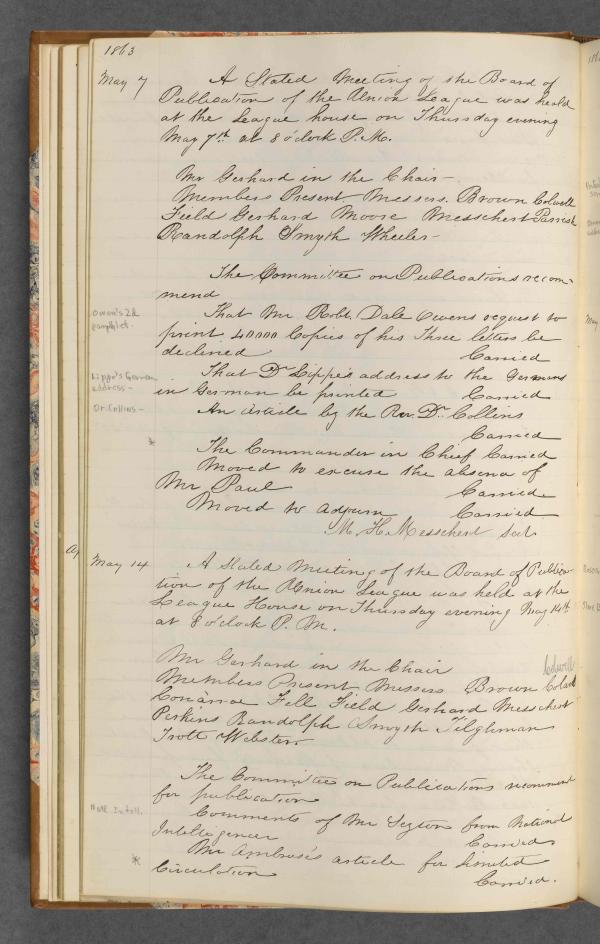 1863
May 7 A Stated Meeting of the Board of
Publication of the Union League was held
at the League house on Thursday evening
May 7th at 8 o'clock P.M.
Mr Gerhard in the Chair-
Members Present Messrs. Brown Colwell
Field Gerhard Moore Messchert Parrish
Randolph Smyth Wheeler-
The Committee on Publications recom-
mend
Owen's 2d
pamphlet.
That Mr Robt. Dale Owens request to
print 40000 Copies of his three letters be
declined Carried
Lippe's German
address-
That Dr Lippe's address to the Germans
in German be printed Carried
Dr. Collins-
An article by the Rev. Dr. Collins
Carried
*
The Commander in Chief Carried
Moved to excuse the absence of
Mr Paul Carried
Moved to adjourn Carried
M. H. Messchert Sect.
May 14 A Stated Meeting of the Board of Publica-
tion of the Union League was held at the
League House on Thursday evening May 14th
at 8 o'clock P. M.
Mr Gerhard in the Chair
Colwell
Members Present Messrs Brown
Fell Field Gerhard Messchert
Perkins Randolph Smyth Tilghman
Trott Webster.
The Committee on Publications recommend
for publication
Natl. Intell.
Comments of Mr from National
Intelligencer Carried
*
Mr Ambrose's article for limited
Circulation Carried.